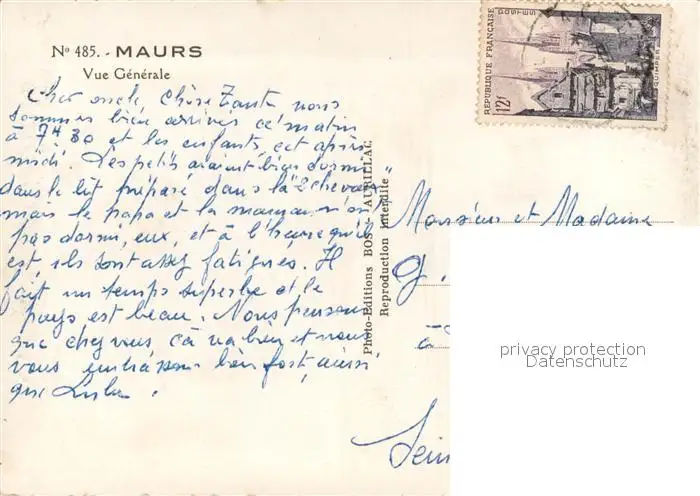 N° 485. - MAURS
Vue Générale
Cher oncle, chère Tante nous
sommes bien arrivés ce matin
à 7H30 et les enfants, cet après
midi. Les petits avaient bien dormi
dans le lit préparé dans la "2 chevaux"
mais le papa et la maman n'on
pas dormi, eux, et à l'heure qu'il
est, ils sont assez fatigués. Il
fait un temps superbe et le
pays est beau. Nous pensons
que chez vous ça va bien et nous
vous embrassons bien fort, ainsi
que Lulu.
Photo-Editions BOS - AURILLAC
Reproduction interdite
POSTES
REPUBLIQUE FRANÇAISE
12f
QUIMPER
Monsieur et Madame
G.
à
Sein
privacy protection
Datenschutz